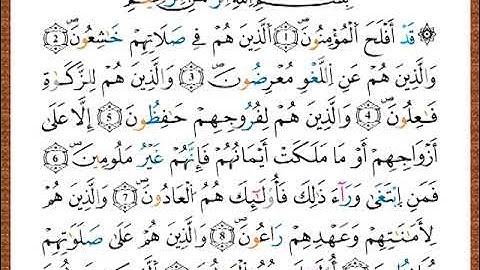 بِسْمِ اللَّهِ الرَّحْمَٰنِ الرَّحِيمِ
قَدْ أَفْلَحَ الْمُؤْمِنُونَ ① الَّذِينَ هُمْ فِي صَلَاتِهِمْ خَٰشِعُونَ ②
وَالَّذِينَ هُمْ عَنِ اللَّغْوِ مُعْرِضُونَ ③ وَالَّذِينَ هُمْ لِلزَّكَوٰةِ
فَٰعِلُونَ ④ وَالَّذِينَ هُمْ لِفُرُوجِهِمْ حَٰفِظُونَ ⑤ إِلَّا عَلَىٰ
أَزْوَٰجِهِمْ أَوْ مَا مَلَكَتْ أَيْمَٰنُهُمْ فَإِنَّهُمْ غَيْرُ مَلُومِينَ ⑥
فَمَنِ ابْتَغَىٰ وَرَآءَ ذَٰلِكَ فَأُوْلَٰٓئِكَ هُمُ الْعَادُونَ ⑦ وَالَّذِينَ هُمْ
لِأَمَٰنَٰتِهِمْ وَعَهْدِهِمْ رَٰعُونَ ⑧ وَالَّذِينَ هُمْ عَلَىٰ صَلَوَٰتِهِمْ